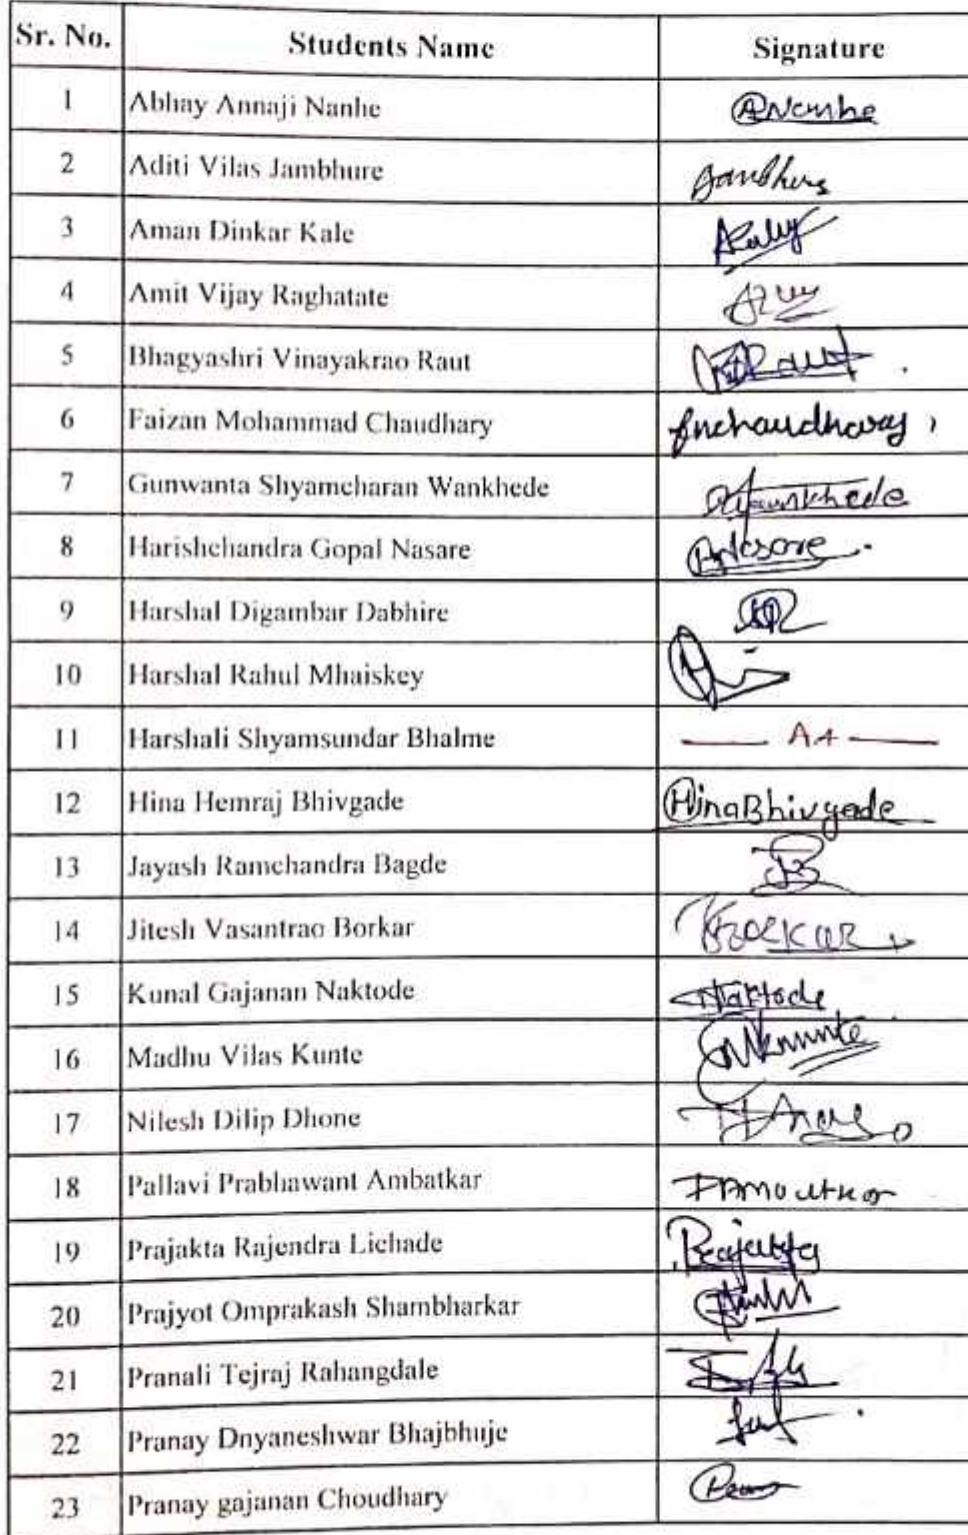 Sr. No. Students Name Signature
1 Abhay Annaji Nanhe ANanhe
2 Aditi Vilas Jambhure
3 Aman Dinkar Kale
4 Amit Vijay Raghatate
5 Bhagyashri Vinayakrao Raut
6 Faizan Mohammad Chaudhary fmchaudhary
7 Gunwanta Shyamcharan Wankhede
8 Harishchandra Gopal Nasare
9 Harshal Digambar Dabhire
10 Harshal Rahul Mhaiskey
11 Harshali Shyamsundar Bhalme
12 Hina Hemraj Bhivgade HinaBhivgade
13 Jayash Ramchandra Bagde
14 Jitesh Vasantrao Borkar
15 Kunal Gajanan Naktode Naktode
16 Madhu Vilas Kunte
17 Nilesh Dilip Dhone
18 Pallavi Prabhawant Ambatkar
19 Prajakta Rajendra Lichade Prajakta
20 Prajyot Omprakash Shambharkar
21 Pranali Tejraj Rahangdale
22 Pranay Dnyaneshwar Bhajbhuje
23 Pranay gajanan Choudhary